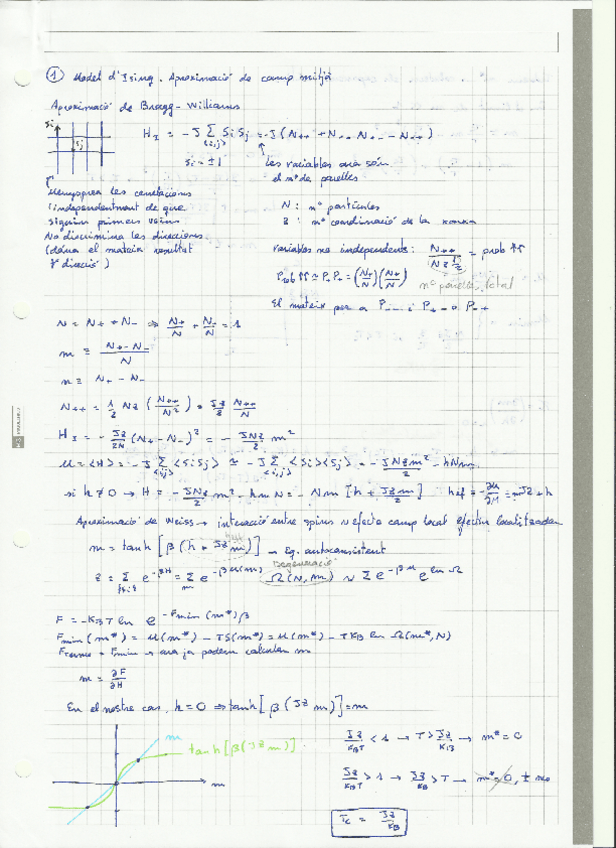 ① Model d'Ising. Aproximació de camp mitjà
Aproximació de Bragg-Williams
H_I = -J Σ_<i,j> SiSj = -J (N++ + N-- - N+- - N-+)
Si Sj
Si = ±1
Les variables ara són
el nº de parelles
Menysprea les correlacions
(independentment de que
siguin primers veïns
No discrimina les direccions
(dóna el mateix resultat
∀ direcció)
N : nº partícules
z : nº coordinació de la xarxa
Variables no independents: N++ / (Nz 1/2) = prob ↑↑
Prob ↑↑ ≈ P+P+ = (N+/N)(N+/N)
nº parelles total
El mateix per a P-- i P+- o P-+
N = N+ + N- ⇒ N+/N + N-/N = 1
m = (N+ - N-)/N
m = N+ - N-
N++ = 1/2 Nz (
H_I = - Jz/2N (N+ - N-)² = - JNz/2 m²
U = <H> = -J Σ_<i,j> <SiSj> ≈ -J Σ_<i,j> <Si><Sj> = - JNz/2 m² - hNm
si h ≠ 0 → H = - JNz/2 m² - hmN = -Nm [h + Jzm/2]
hef = -∂U/∂M = mJz + h
Aproximació de Weiss → interacció entre spins
m = tanh [β(h + Jzm)] → Eq. autoconsistent
Degeneració
z = Σ e^-βH = Σ_m e^-βU(m) Ω(N,m) ~ Σ e^-βU e^ln Ω
F = -K_B T ln e^-Fmin(m*)β
Fmin(m*) = U(m*) - TS(m*) = U(m*) - TK_B ln Ω(m*,N)
= Fmin → ara ja podem calcular m
m = ∂F/∂H
En el nostre cas, h = 0 ⇒ tanh [β(Jzm)] = m
m
tanh [β(Jzm)]
m
Jz/K_BT < 1 → T > Jz/K_B → m* = 0
Jz/K_BT > 1 → Jz/K_B > T → m* = 0, ± m0
Tc = Jz/K_B